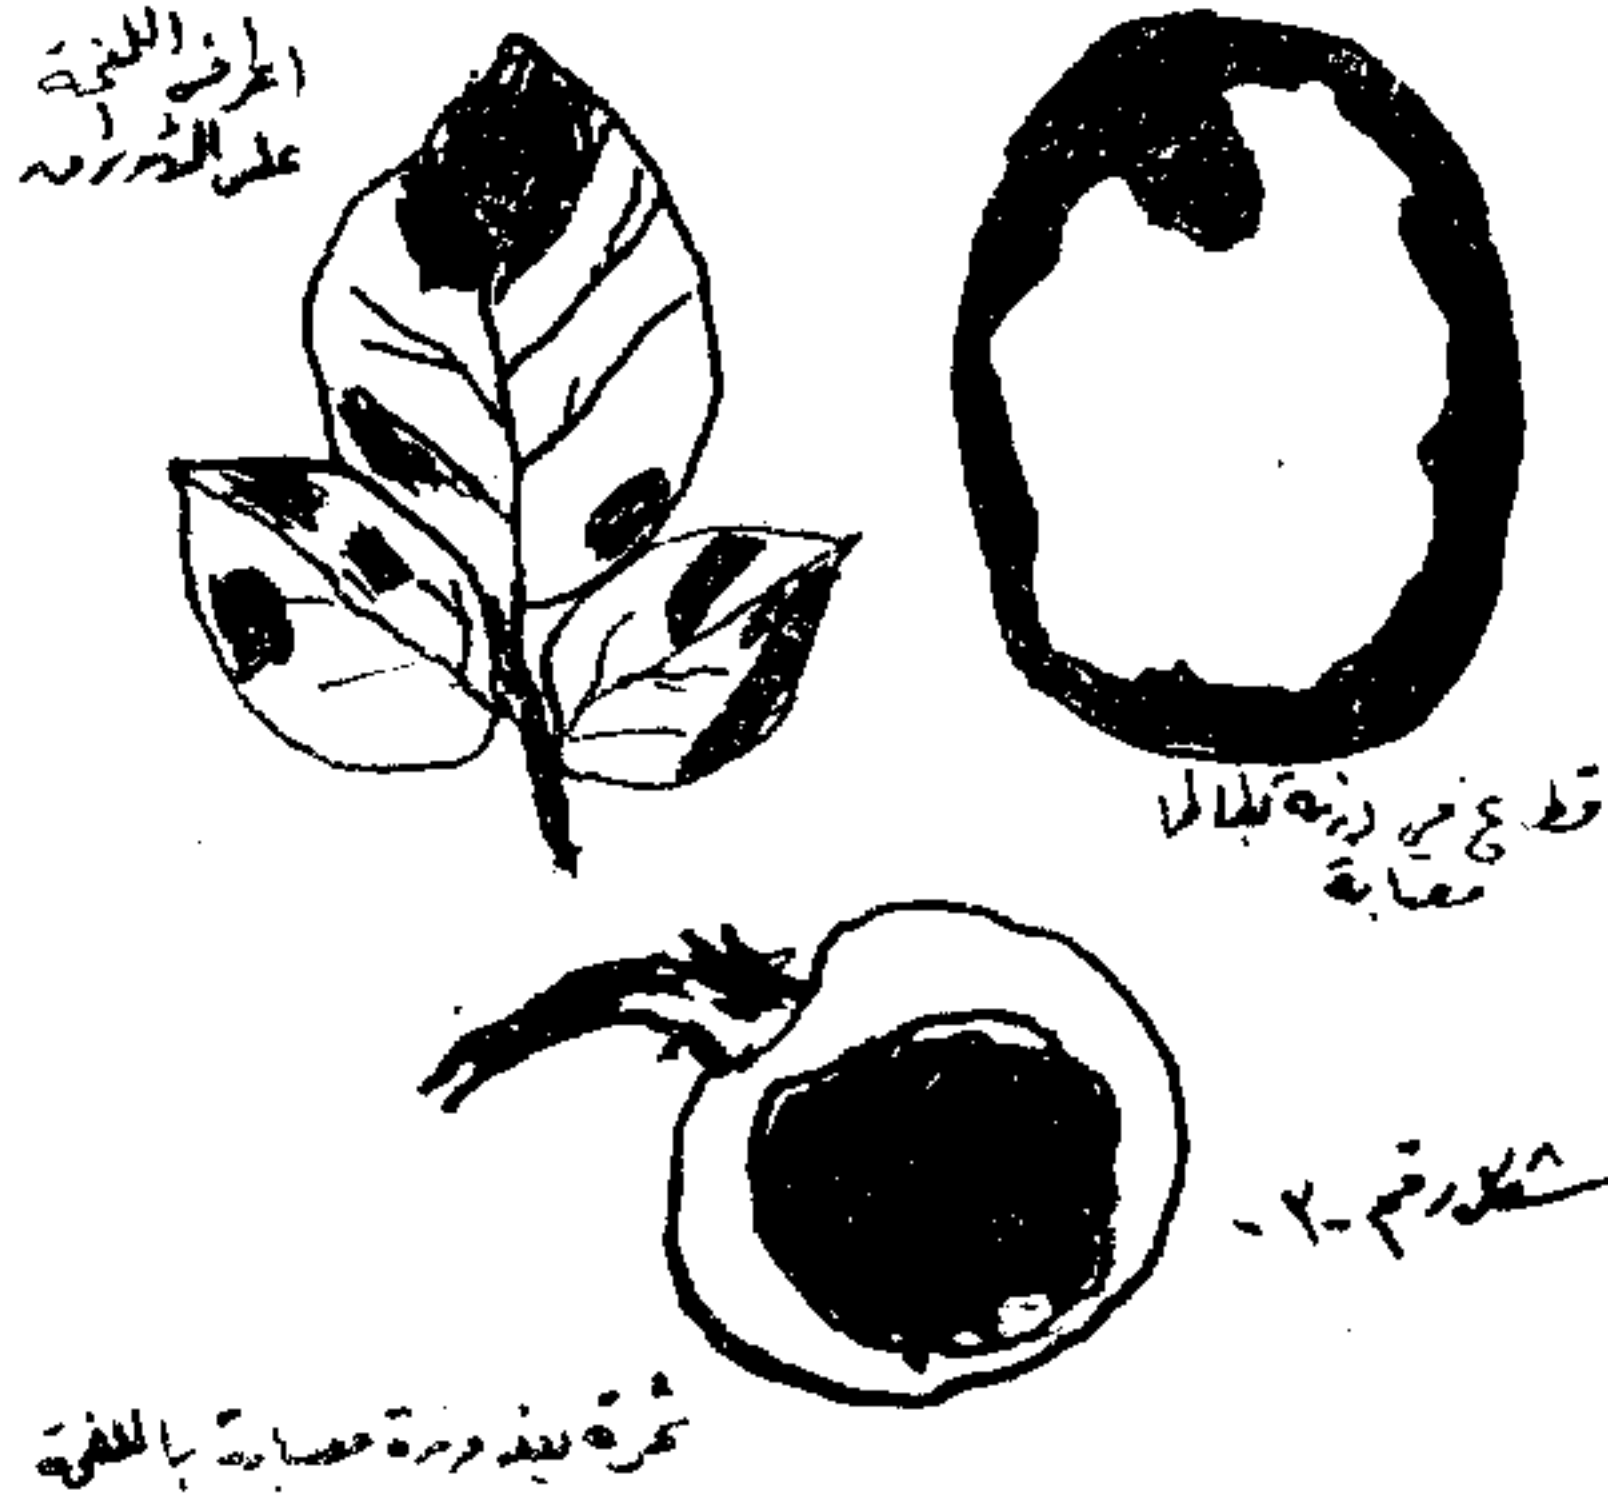 اعراض اللفحة
على الأوراق
قطع في درنة بطاطا
مصابة
شكل رقم -٢-
ثمرة بندورة مصابة باللفحة